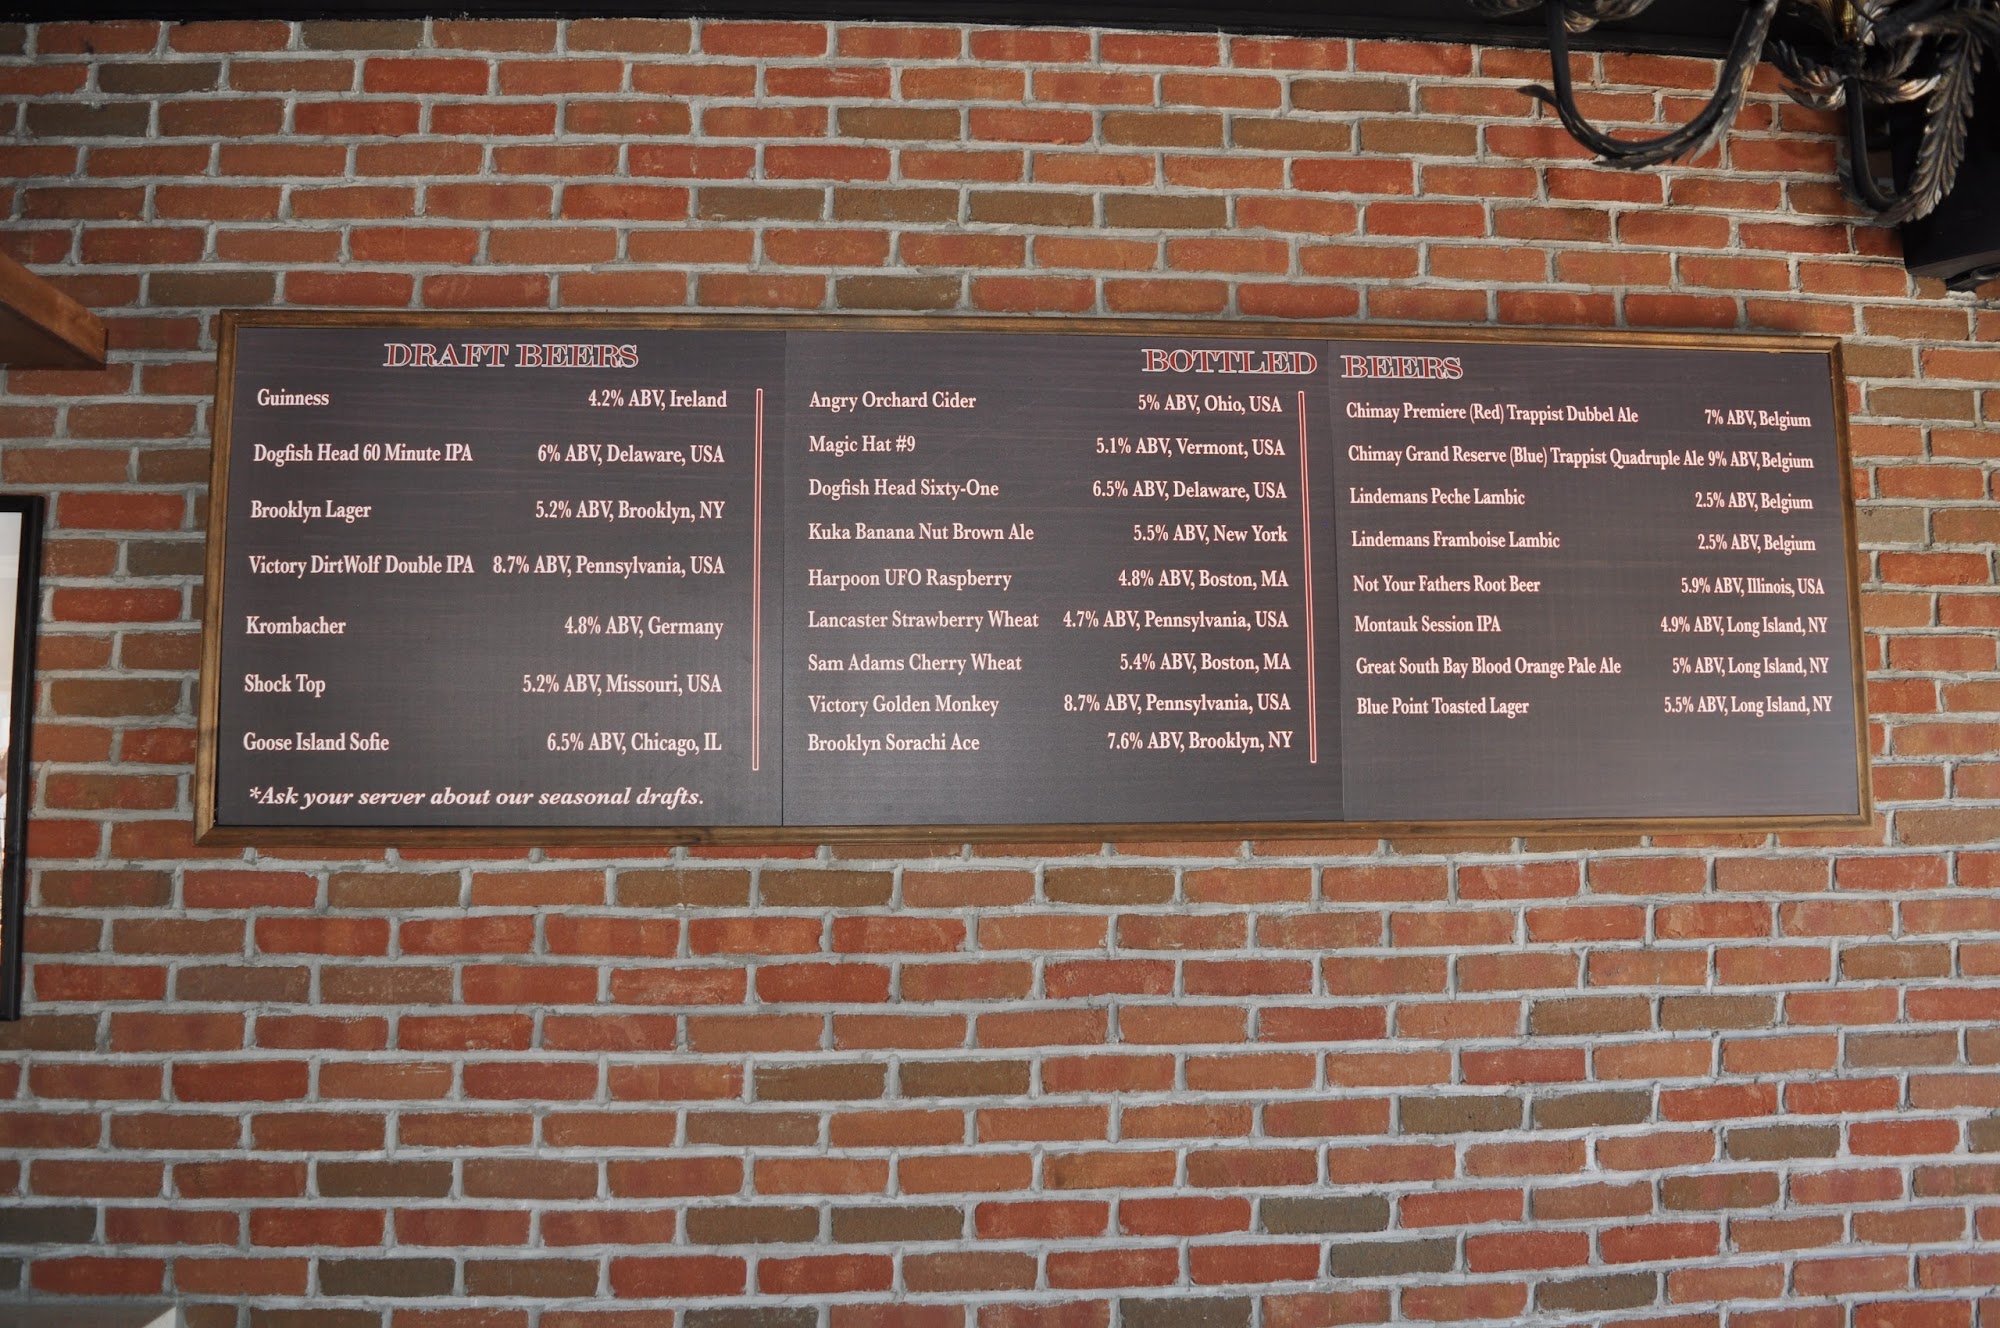 DRAFT BEERS
Guinness 4.2% ABV, Ireland
Dogfish Head 60 Minute IPA 6% ABV, Delaware, USA
Brooklyn Lager 5.2% ABV, Brooklyn, NY
Victory DirtWolf Double IPA 8.7% ABV, Pennsylvania, USA
Krombacher 4.8% ABV, Germany
Shock Top 5.2% ABV, Missouri, USA
Goose Island Sofie 6.5% ABV, Chicago, IL
*Ask your server about our seasonal drafts.
BOTTLED BEERS
Angry Orchard Cider 5% ABV, Ohio, USA
Magic Hat #9 5.1% ABV, Vermont, USA
Dogfish Head Sixty-One 6.5% ABV, Delaware, USA
Kuka Banana Nut Brown Ale 5.5% ABV, New York
Harpoon UFO Raspberry 4.8% ABV, Boston, MA
Lancaster Strawberry Wheat 4.7% ABV, Pennsylvania, USA
Sam Adams Cherry Wheat 5.4% ABV, Boston, MA
Victory Golden Monkey 8.7% ABV, Pennsylvania, USA
Brooklyn Sorachi Ace 7.6% ABV, Brooklyn, NY
Chimay Premiere (Red) Trappist Dubbel Ale 7% ABV, Belgium
Chimay Grand Reserve (Blue) Trappist Quadruple Ale 9% ABV, Belgium
Lindemans Peche Lambic 2.5% ABV, Belgium
Lindemans Framboise Lambic 2.5% ABV, Belgium
Not Your Fathers Root Beer 5.9% ABV, Illinois, USA
Montauk Session IPA 4.9% ABV, Long Island, NY
Great South Bay Blood Orange Pale Ale 5% ABV, Long Island, NY
Blue Point Toasted Lager 5.5% ABV, Long Island, NY